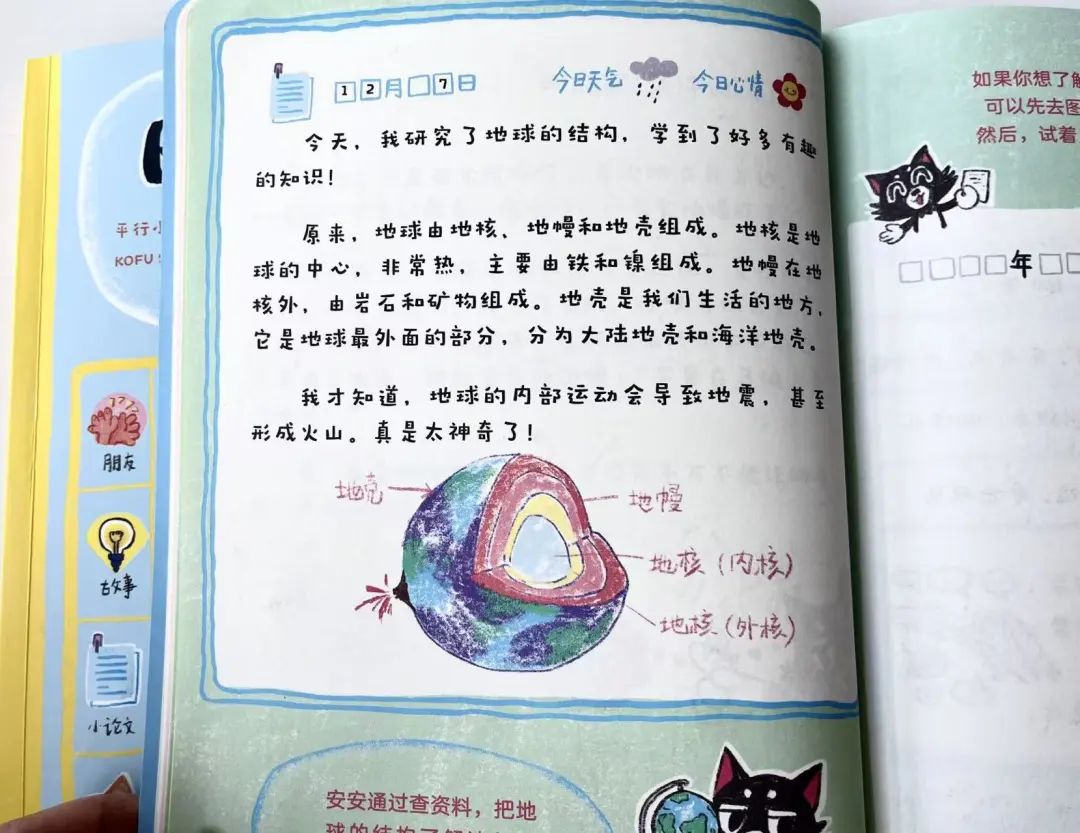 12月 7日 今日天气 今日心情
今天，我研究了地球的结构，学到了好多有趣
的知识！
原来，地球由地核、地幔和地壳组成。地核是地
球的中心，非常热，主要由铁和镍组成。地幔在地
核外，由岩石和矿物组成。地壳是我们生活的地方，
它是地球最外面的部分，分为大陆地壳和海洋地壳。
我才知道，地球的内部运动会导致地震，甚至
形成火山。真是太神奇了！
地壳
地幔
地核（内核）
地核（外核）
安安通过查资料，把地
球的结构了解
平行小
KOFU
朋友
故事
小论文
如果你想了解
可以先去图
然后，试着
年